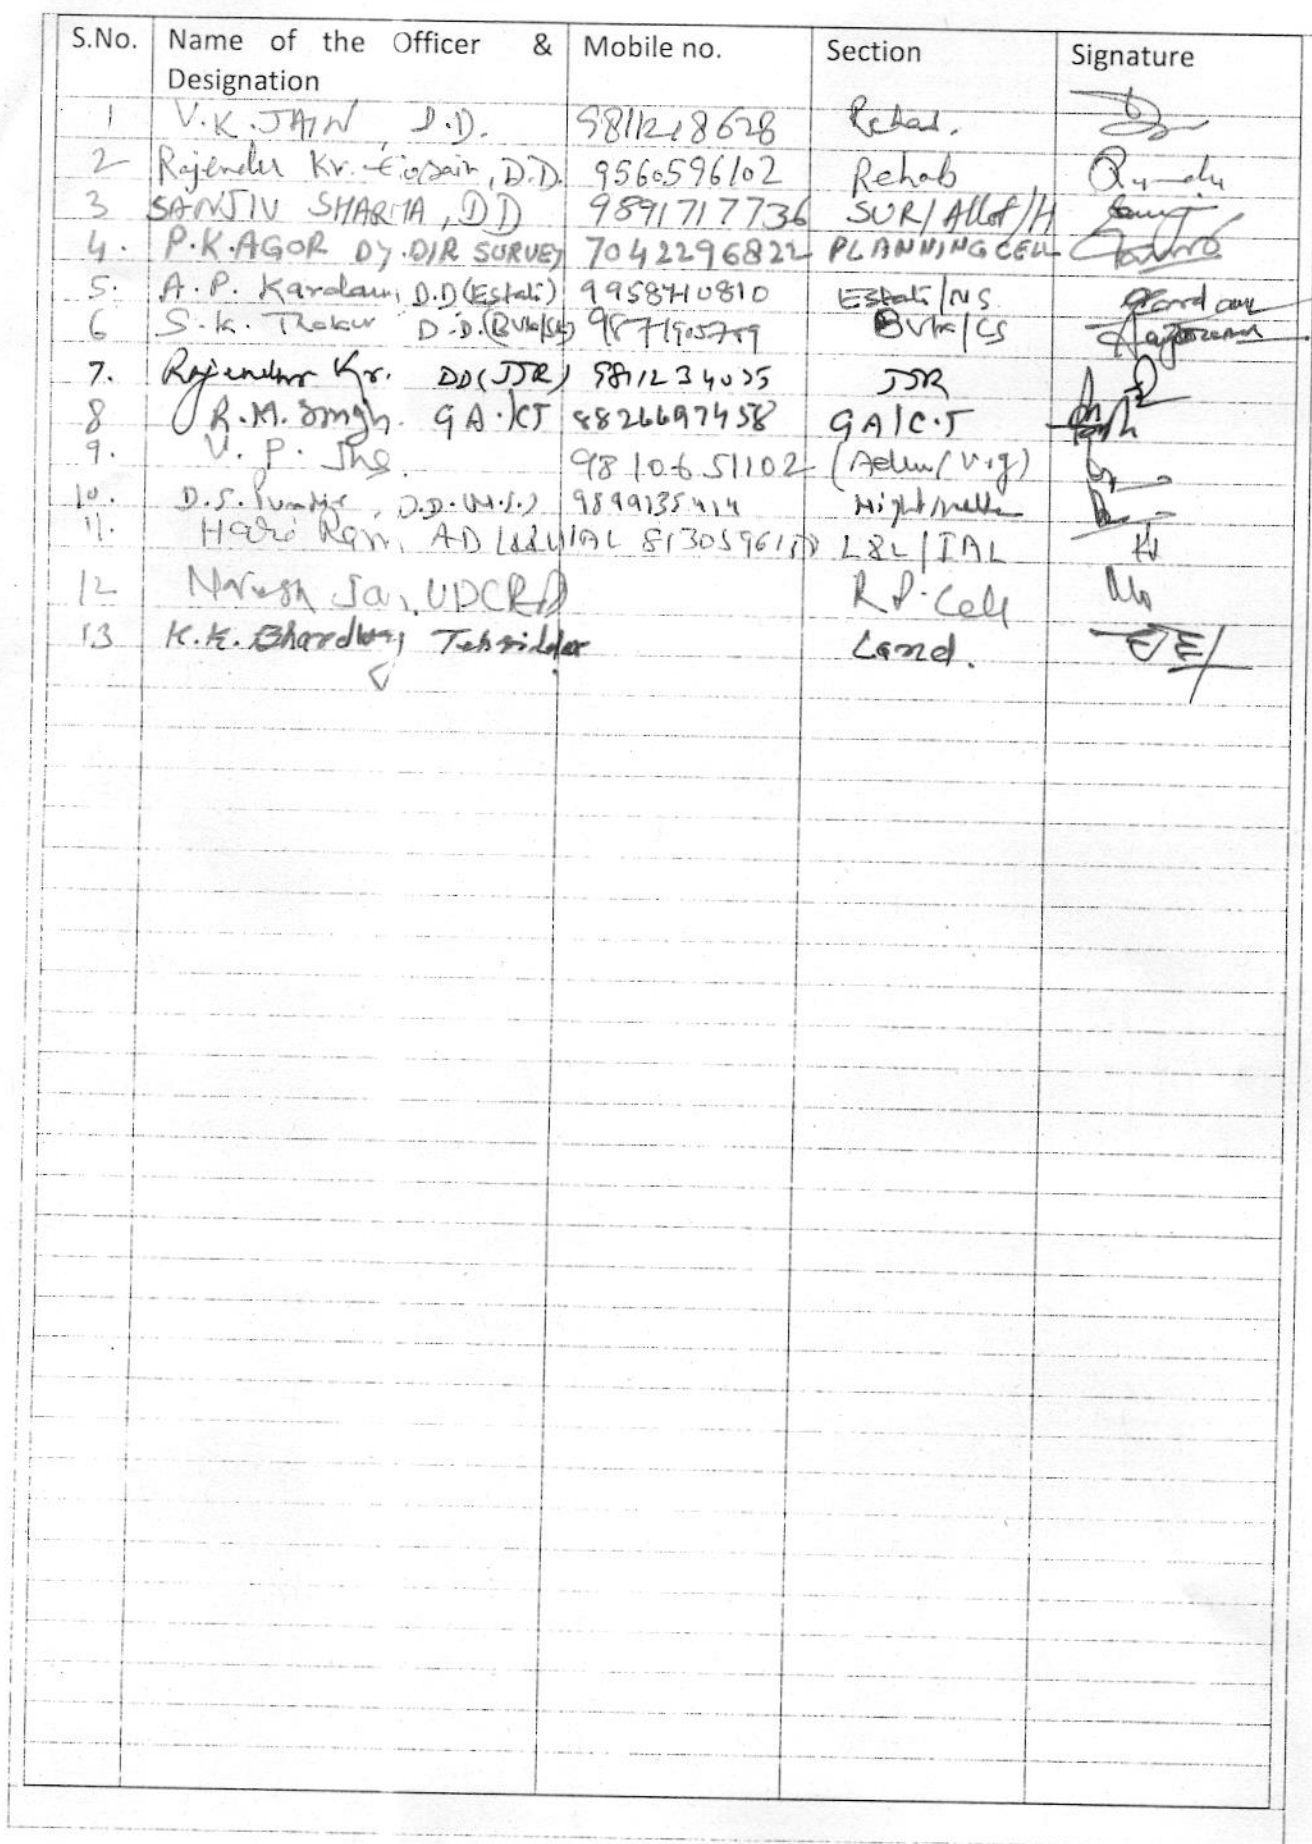 S.No. Name of the Officer & Designation Mobile no. Section Signature
1 V.K. JAIN, D.D. 9811218628 Rehab.
2 Rajender Kr. D.D. 9560596102 Rehab
3 SANJIV SHARMA, DD 9891717736 SUR/Allot/H
4. P.K.AGOR DY.DIR SURVEY 7042296822 PLANNING CELL
5. A.P. Kardam, D.D(Estate) 9958710810 Estate/NS
6 S.K. Thakur D.D. 
7. Rajender Kr. DD(JJR) JJR
8 R.M. Singh. GA.ICT 8826697458 GA/C.T
9. V. P. Jha. 9810651102 (Admn/Vig)
10. D.S. 9899135414
11. Hari Ram, AD L&L/IAL
12 Naresh UDCRP R.P. Cell
13 K.K. Bhardwaj Tehsildar Land.